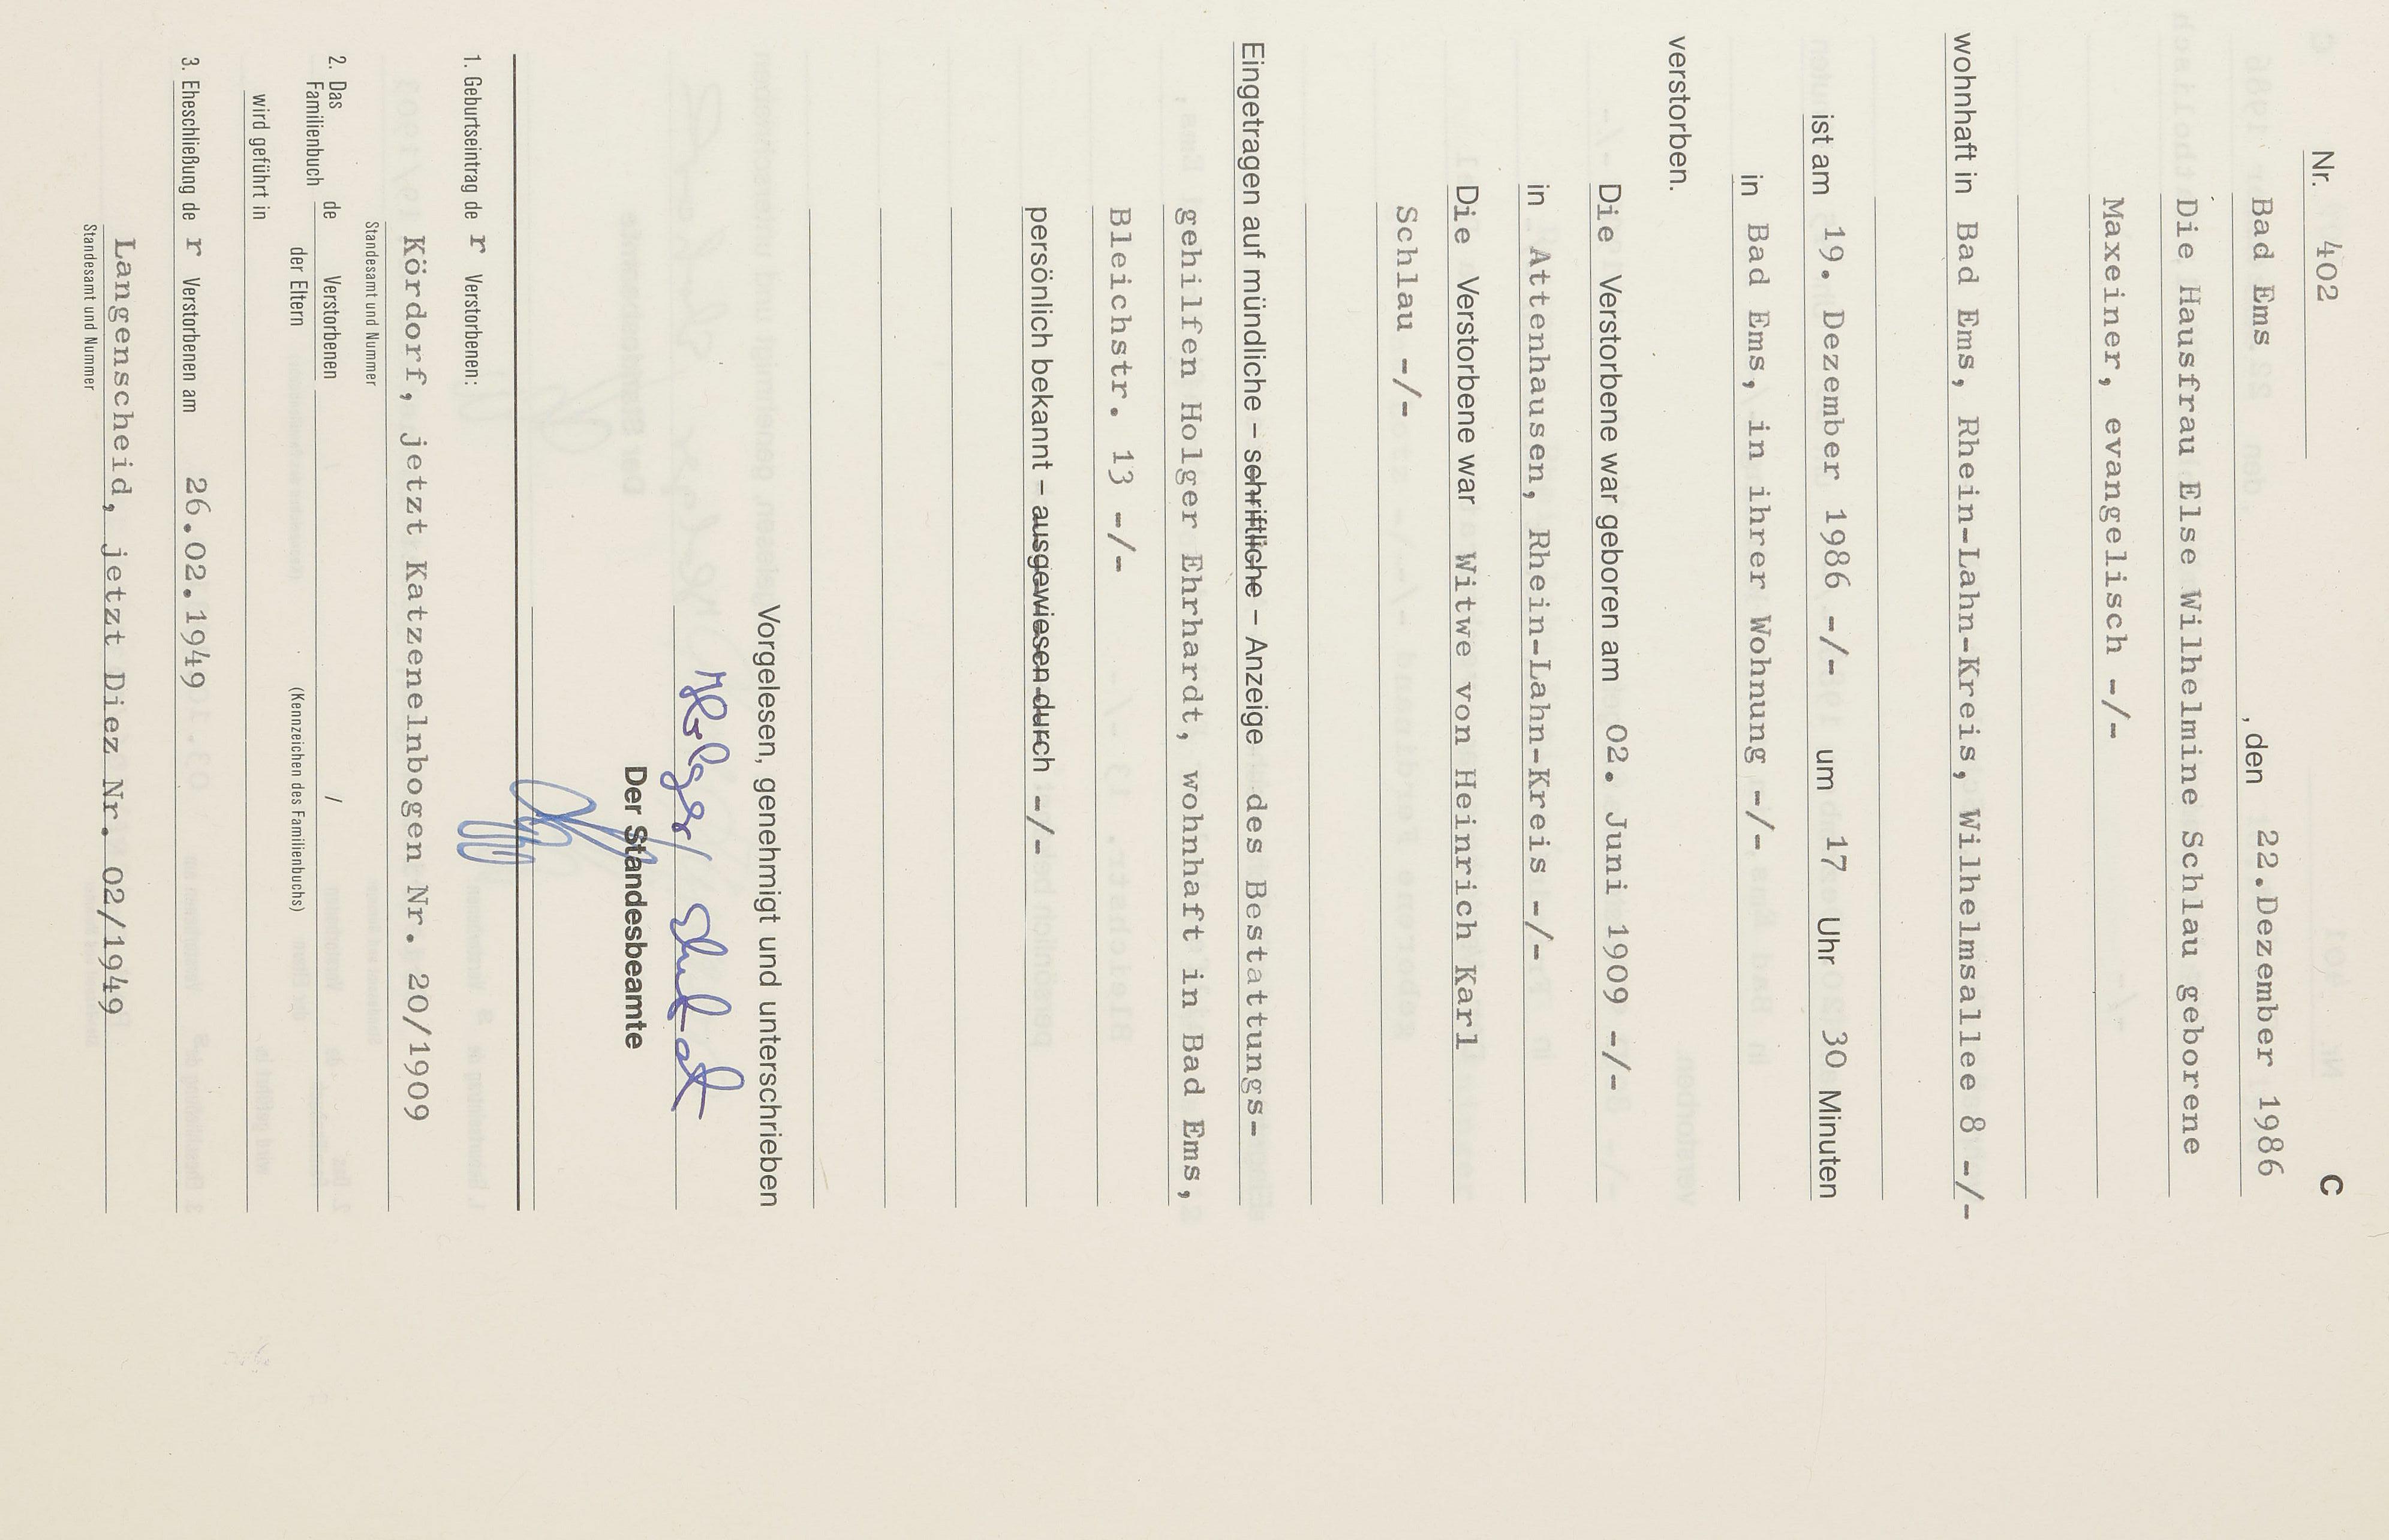 C
Nr. 402
Bad Ems , den 22.Dezember 1986
Die Hausfrau Else Wilhelmine Schlau geborene
Maxeiner, evangelisch -/-
wohnhaft in Bad Ems, Rhein-Lahn-Kreis, Wilhelmsallee 8 -/-
ist am 19. Dezember 1986 -/- um 17 Uhr 30 Minuten
in Bad Ems, in ihrer Wohnung -/-
verstorben.
Die Verstorbene war geboren am 02. Juni 1909 -/-
in Attenhausen, Rhein-Lahn-Kreis -/-
Die Verstorbene war Witwe von Heinrich Karl
Schlau -/-
Eingetragen auf mündliche – schriftliche – Anzeige des Bestattungs-
gehilfen Holger Ehrhardt, wohnhaft in Bad Ems,
Bleichstr. 13 -/-
persönlich bekannt – ausgewiesen durch -/-
Vorgelesen, genehmigt und unterschrieben
Holger
Der Standesbeamte
1. Geburtseintrag de r Verstorbenen:
Kördorf, jetzt Katzenelnbogen Nr. 20/1909
Standesamt und Nummer
2. Das Familienbuch de Verstorbenen /
der Eltern (Kennzeichen des Familienbuchs)
wird geführt in
3. Eheschließung de r Verstorbenen am 26.02.1949
Langenscheid, jetzt Diez Nr. 02/1949
Standesamt und Nummer